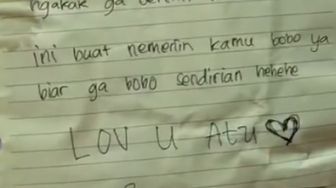 ngakak ga
ini buat nemenin kamu bobo ya
biar ga bobo sendirian hehehe
LOV U Atu